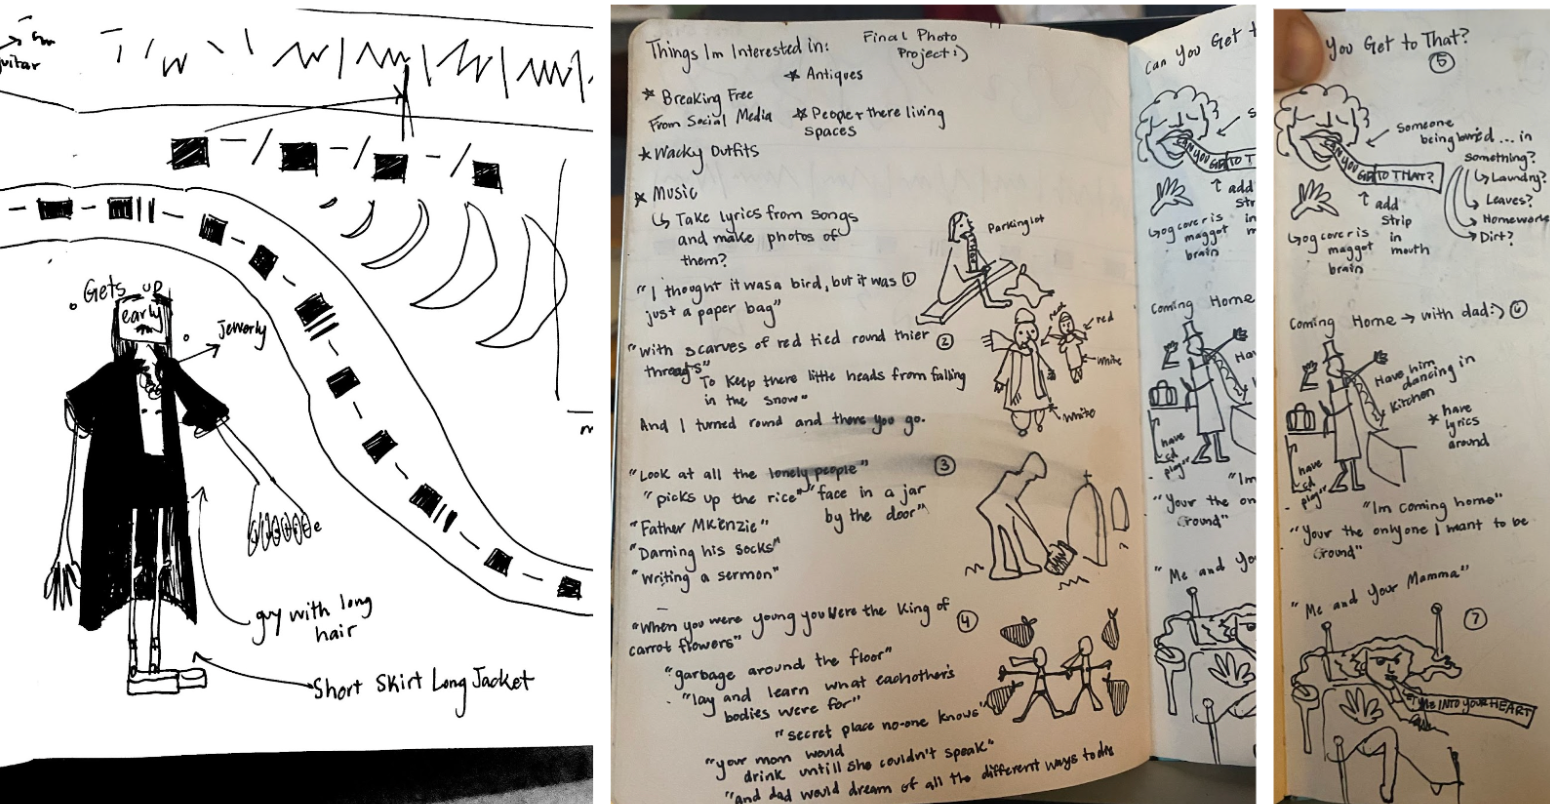 guitar
Gets up
early
Jewerly
guy with long
hair
Short Skirt Long Jacket
Things Im Interested in:
Final Photo
Project :)
* Antiques
* Breaking Free
From Social Media
* People + there living
spaces
* Wacky Outfits
* Music
↳ Take lyrics from songs
and make photos of
them?
"I thought it was a bird, but it was ①
just a paper bag"
Parking lot
"With scarves of red tied round thier ②
throats"
To keep there little heads from falling
in the snow"
And I turned round and there you go.
red
red
white
white
"Look at all the lonely people" ③
"picks up the rice" "face in a jar
by the door"
"Father McKenzie"
"Darning his socks"
"Writing a sermon"
"When you were young you were the King of ④
carrot flowers"
"garbage around the floor"
"lay and learn what eachother's
bodies were for"
"secret place no-one knows"
"your mom would
drink untill she couldn't speak"
"and dad would dream of all the different ways to die
Can You Get t
CAN YOU GET TO T
↑ add
str
in
m
↳ og cover is
maggot
brain
Coming Home
Hav
have
cd
play"
"Im
"Your the on
Ground"
"Me and Yo
You Get to That?
⑤
someone
being buried ... in
something?
↳ Laundry?
Leaves?
Homework
Dirt?
CAN YOU GET TO THAT?
↑ add
strip
in
mouth
↳ og cover is
maggot
brain
Coming Home → with dad :) ⑥
Have him
dancing in
Kitchen
* have
lyrics
around
have
cd
play"
"Im coming home"
"Your the only one I want to be
Ground"
"Me and Your Mamma"
⑦
ME INTO YOUR HEART